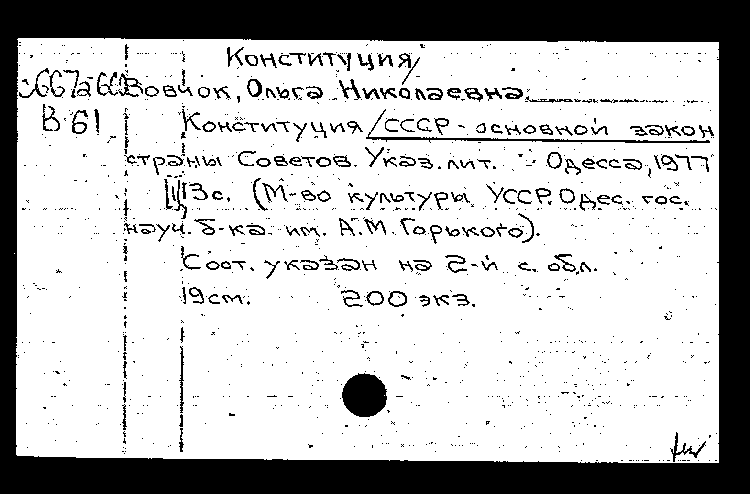 Конституция/
Вовчок, Ольга Николаевна.
В 61
Конституция /СССР - основной закон
страны Советов. Указ. лит. - Одесса, 1977
13с. (М-во культуры УССР. Одес. гос.
науч. б-ка им. А.М. Горького).
Сост. указан на 2-й с. обл.
19см. 200 экз.